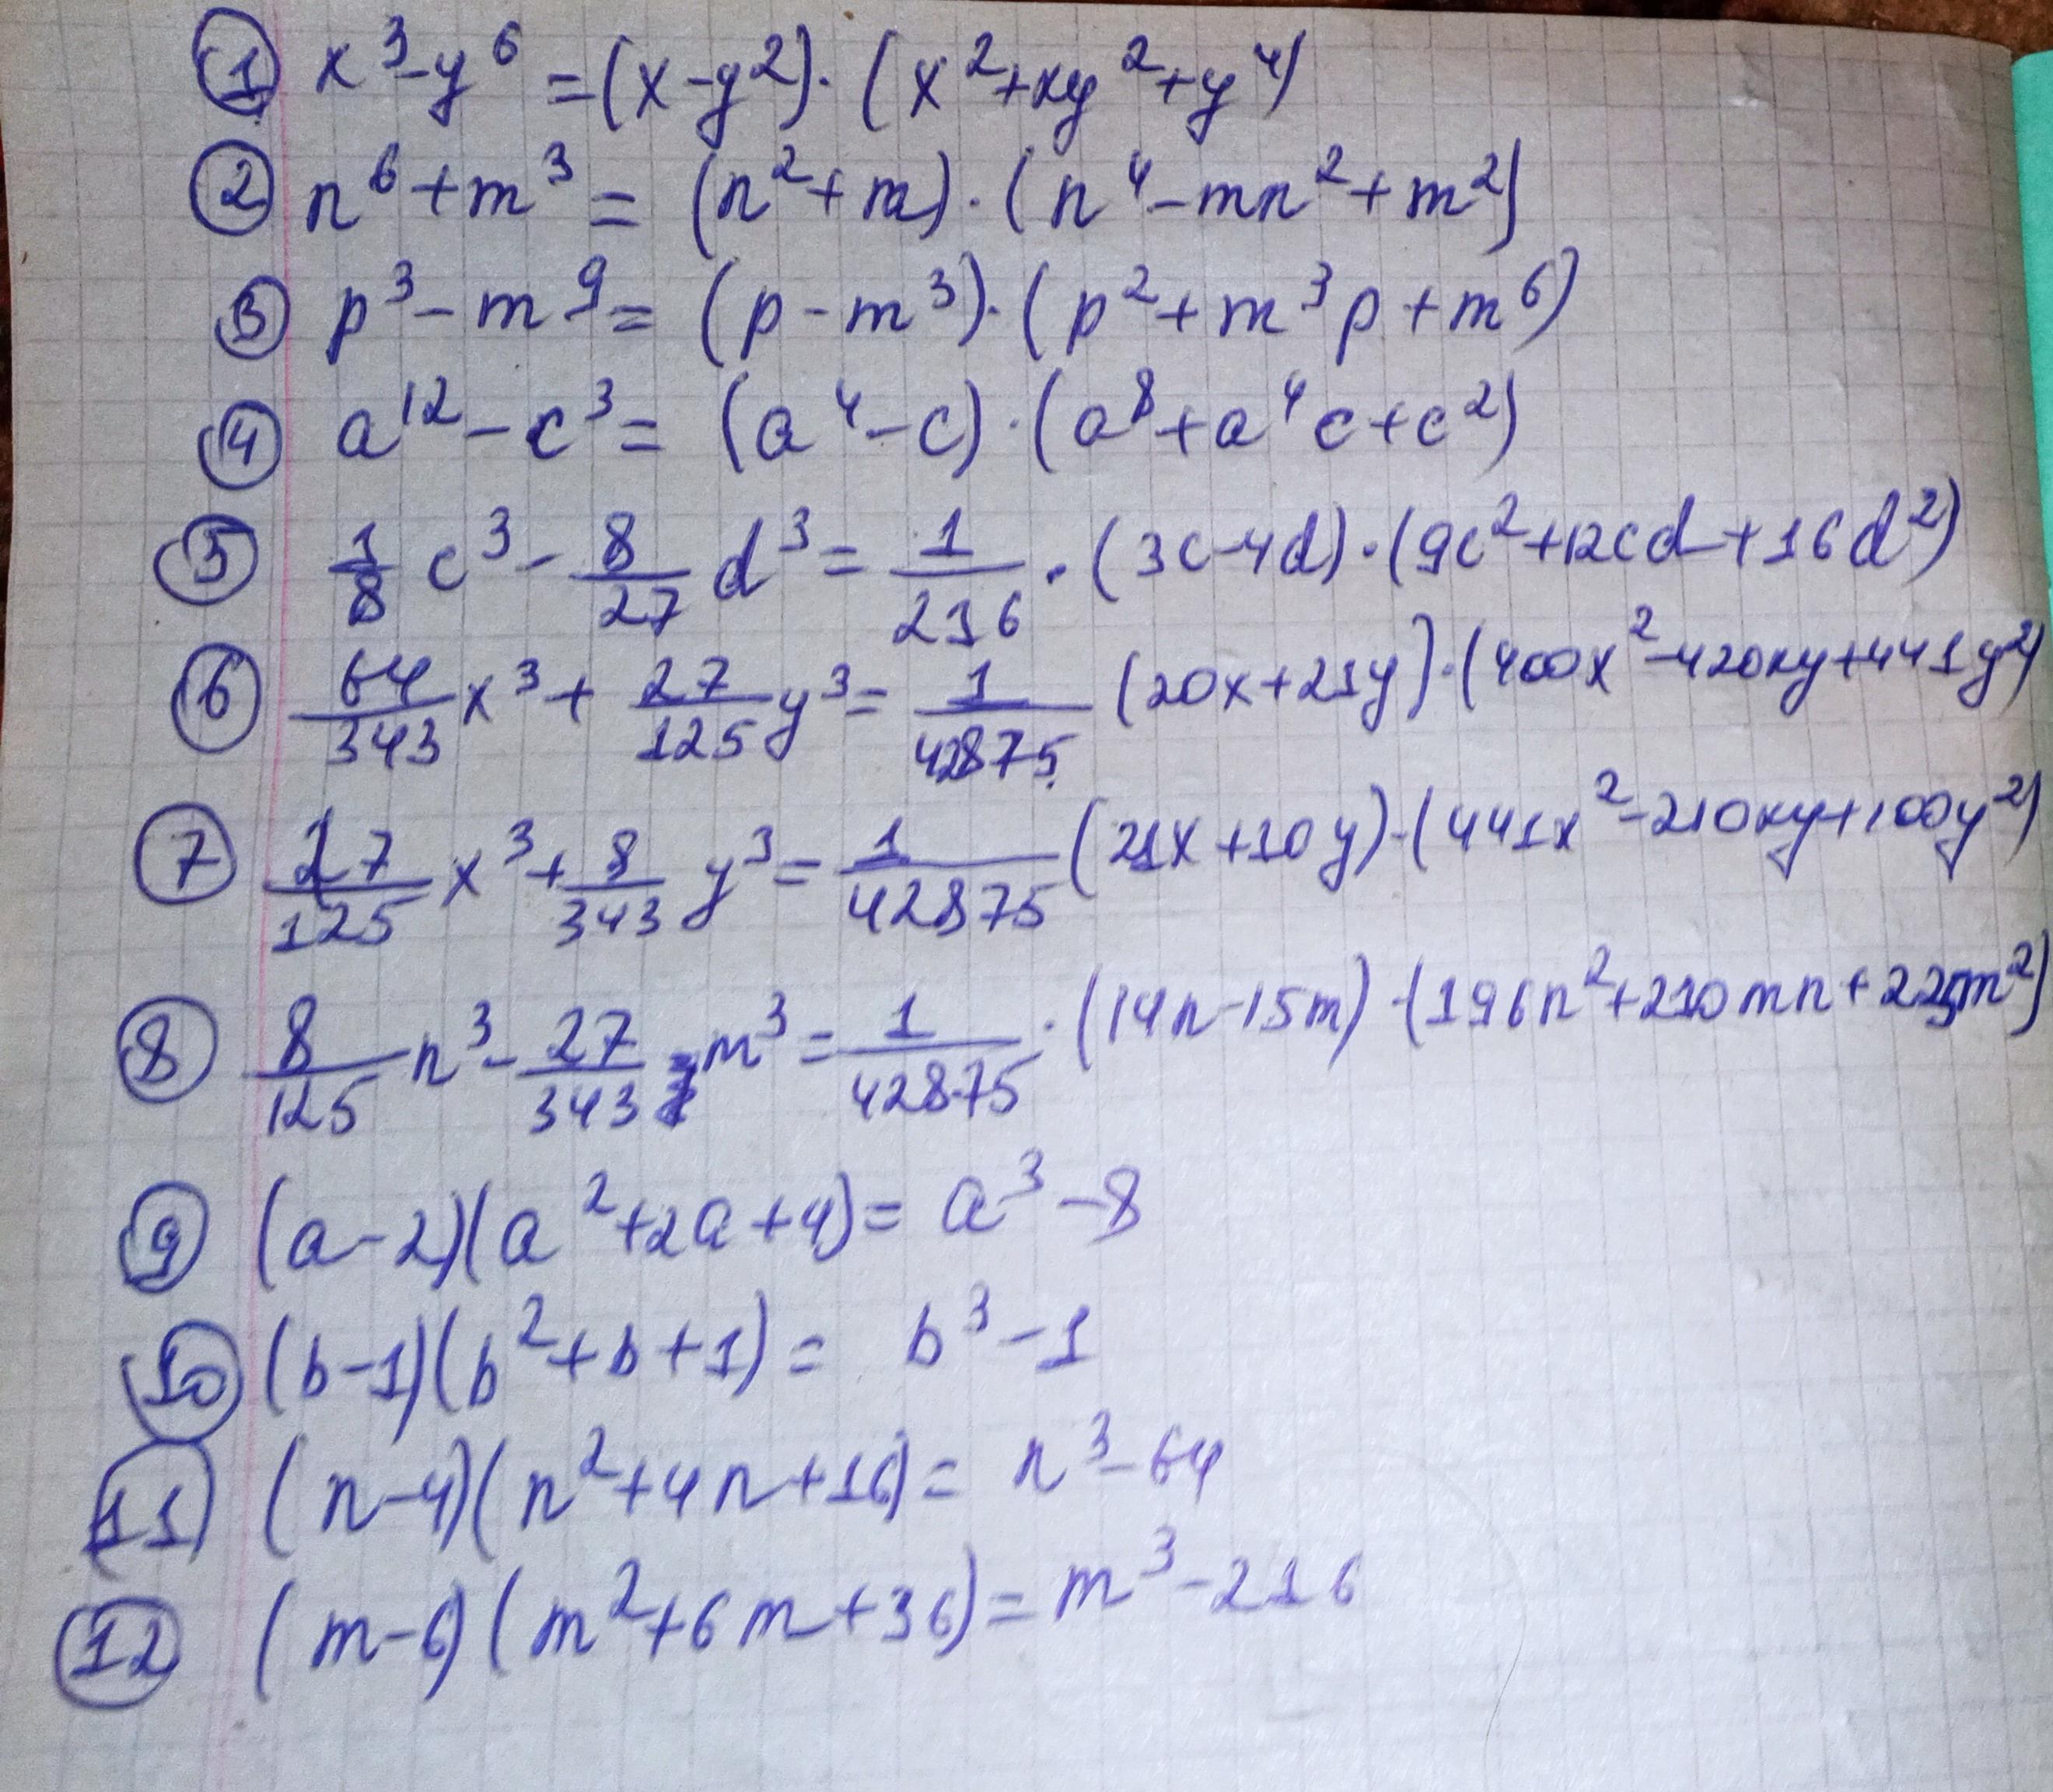 ① x³-y⁶=(x-y²)·(x²+xy²+y⁴)
② n⁶+m³=(n²+m)·(n⁴-mn²+m²)
③ p³-m⁹=(p-m³)·(p²+m³p+m⁶)
④ a¹²-c³=(a⁴-c)·(a⁸+a⁴c+c²)
⑤ 1/8 c³-8/27 d³=1/216·(3c-4d)·(9c²+12cd+16d²)
⑥ 64/343 x³+27/125 y³=1/42875 (20x+21y)·(400x²-420xy+441y²)
⑦ 27/125 x³+8/343 y³=1/42875 (21x+10y)·(441x²-210xy+100y²)
⑧ 8/125 n³-27/343 m³=1/42875·(14n-15m)·(196n²+210mn+225m²)
⑨ (a-2)(a²+2a+4)=a³-8
⑩ (b-1)(b²+b+1)=b³-1
⑪ (n-4)(n²+4n+16)=n³-64
⑫ (m-6)(m²+6m+36)=m³-216